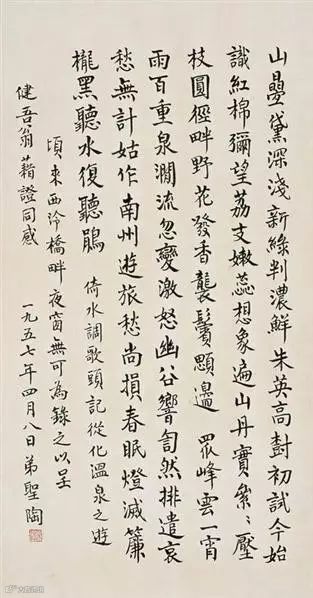 山疊黛深淺新綠判濃鮮朱英高尌初試今始
識紅棉彌望荔支嫩蕊想象遍山丹實纍〻壓
枝圓徑畔野花發香襲鬢顋邊 眾峰雲一宵
雨百重泉澗流忽變激怒幽谷響訇然排遣哀
愁無計姑作南州遊旅愁尚損春眠燈滅簾
櫳黑聽水復聽鵑 倚水調歌頭記從化溫泉之遊
頃來西泠橋畔夜窗無可為錄之以呈
健吾翁藉證同感 一九五七年四月八日弟聖陶